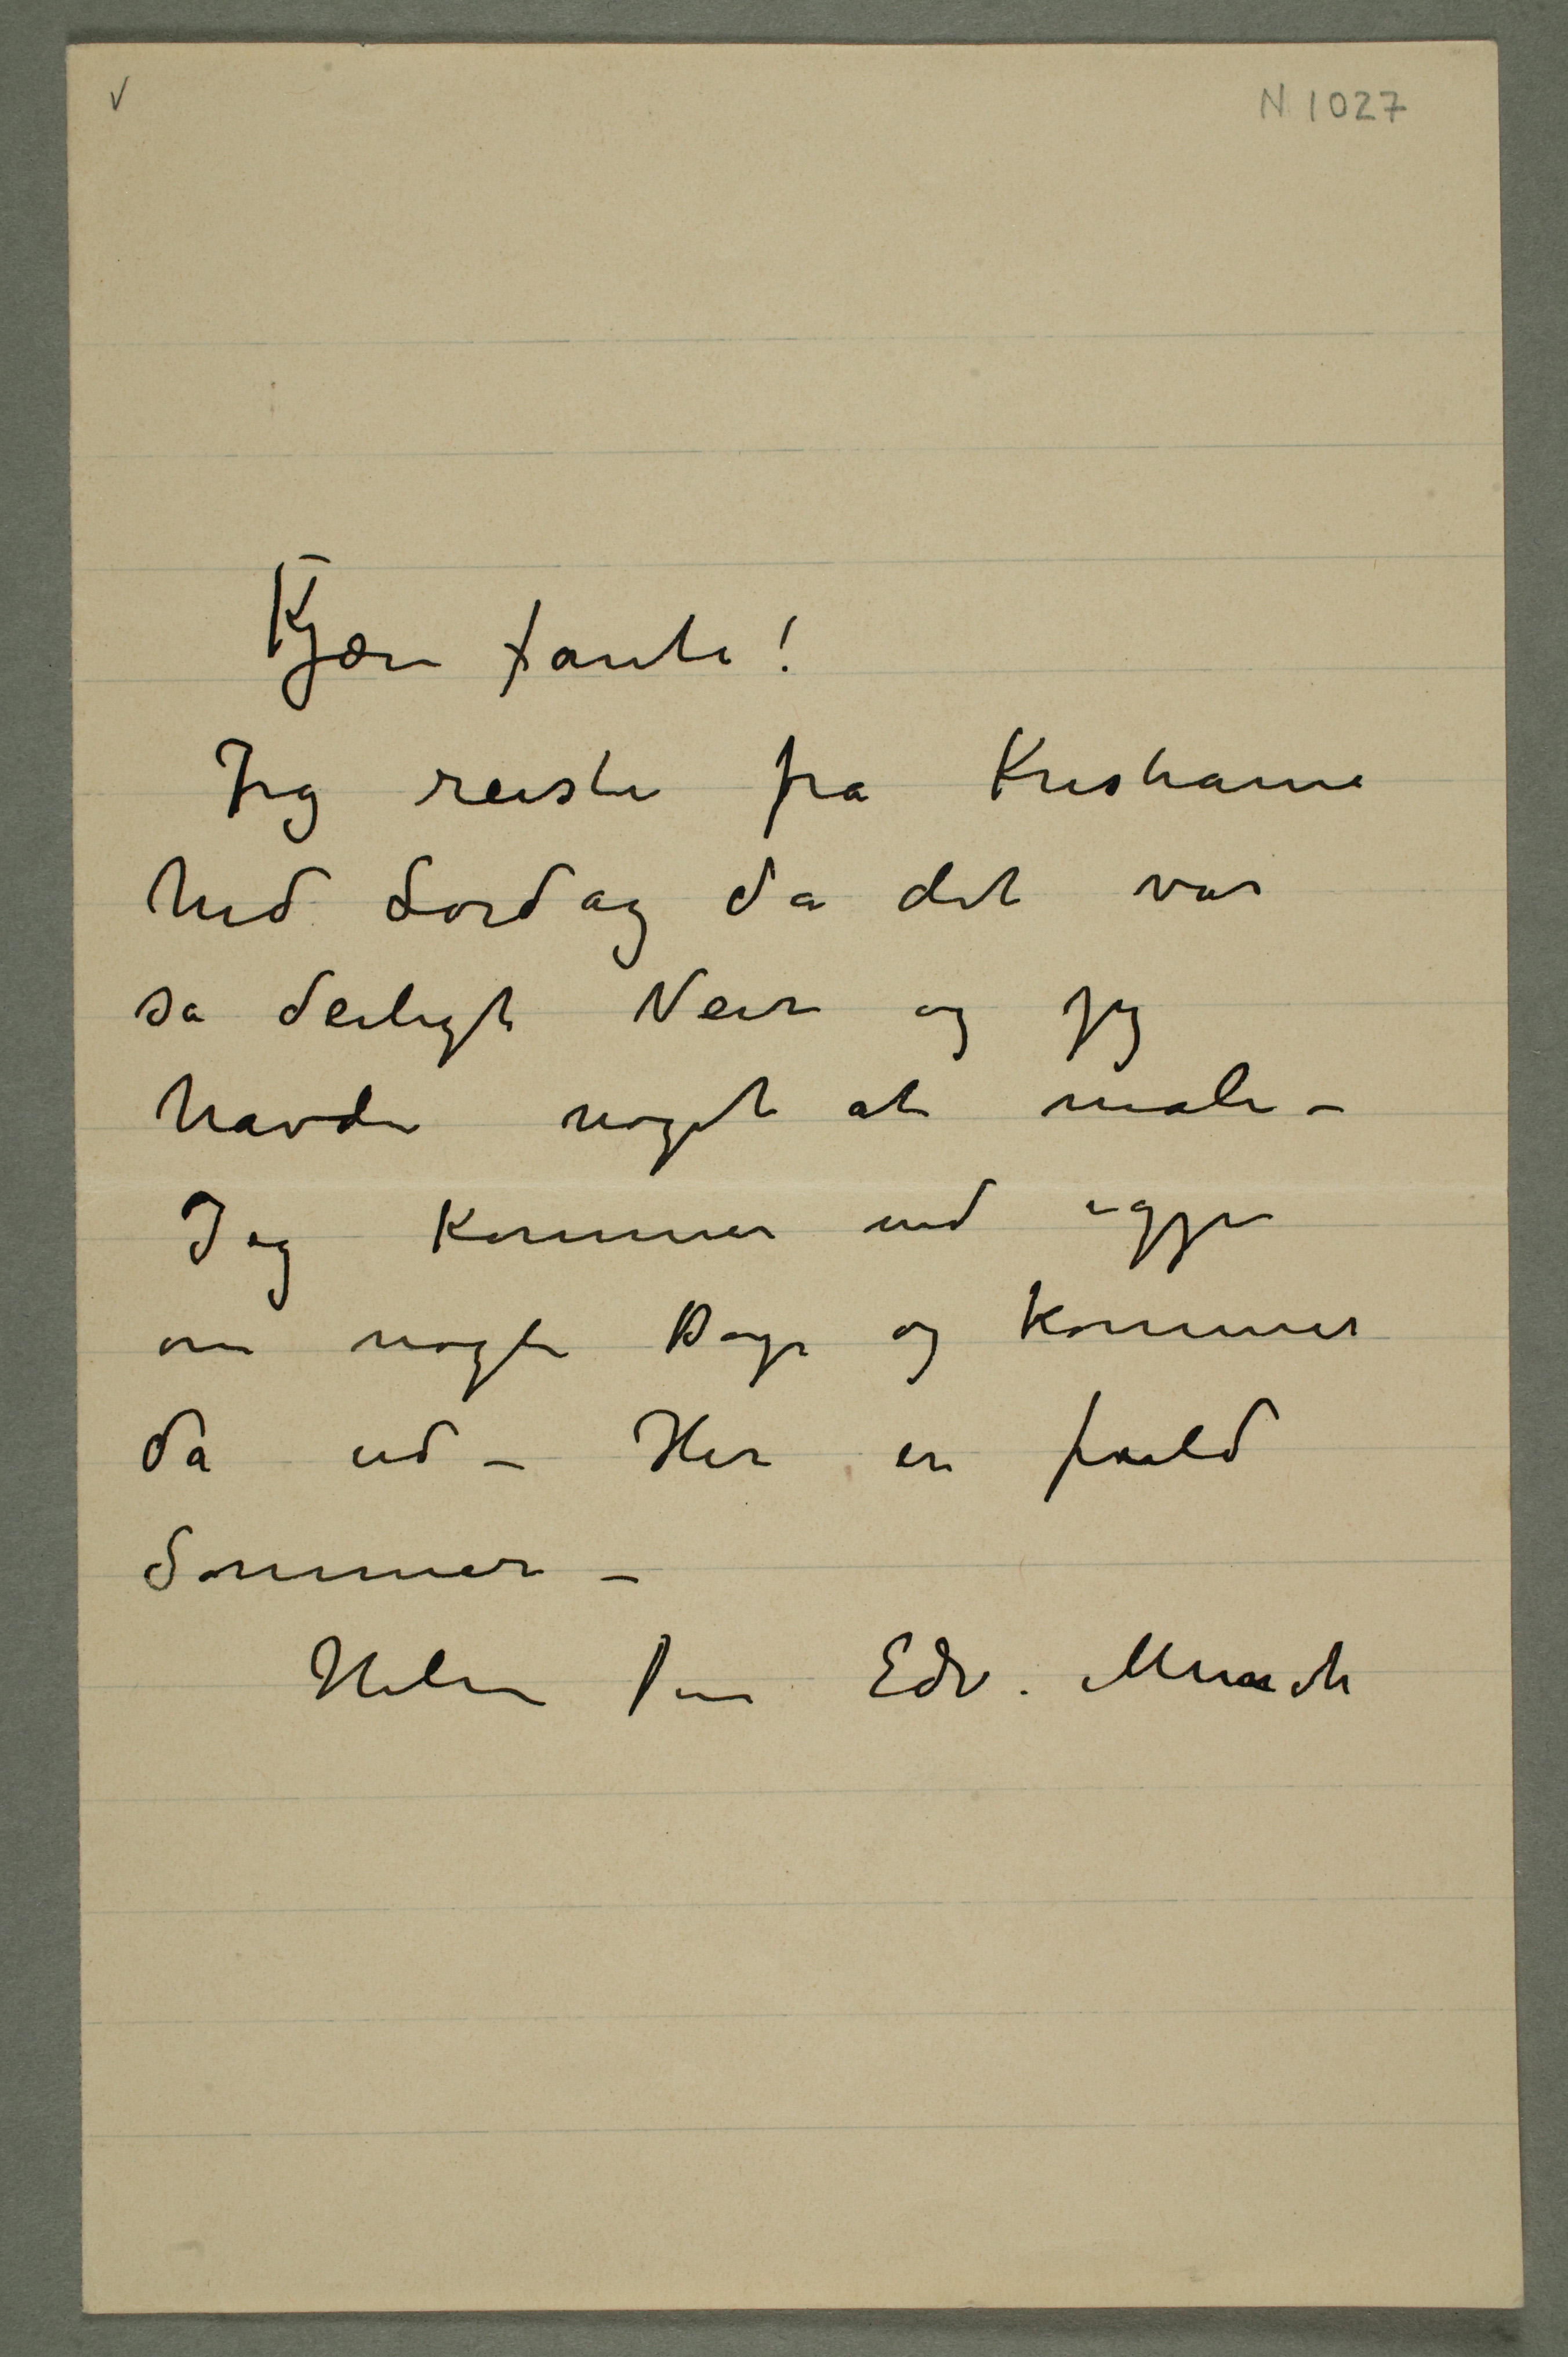 v
N 1027
Kjære tante!
Jeg reiste fra Kristiania
hid Lørdag da det var
så deiligt Veir og jeg
havde noget at male –
Jeg kommer ind igjen
om nogle Dage og kommer
da ud – Her er fuld
Sommer –
Hilsen Din Edv. Munch